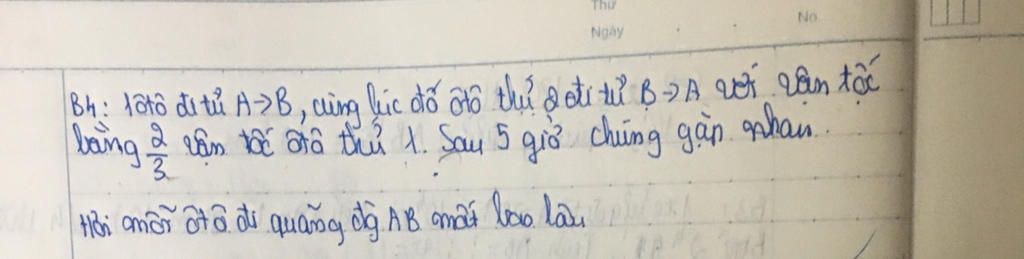 Thứ
Ngày
No
B4: 1 ôtô đi từ A→B, cùng lúc đó ôtô thứ 2 đi từ B→A với vận tốc
bằng 2/3 vận tốc ôtô thứ 1. Sau 5 giờ chúng gặp nhau.
Hỏi mỗi ôtô đi quãng đg AB mất bao lâu.